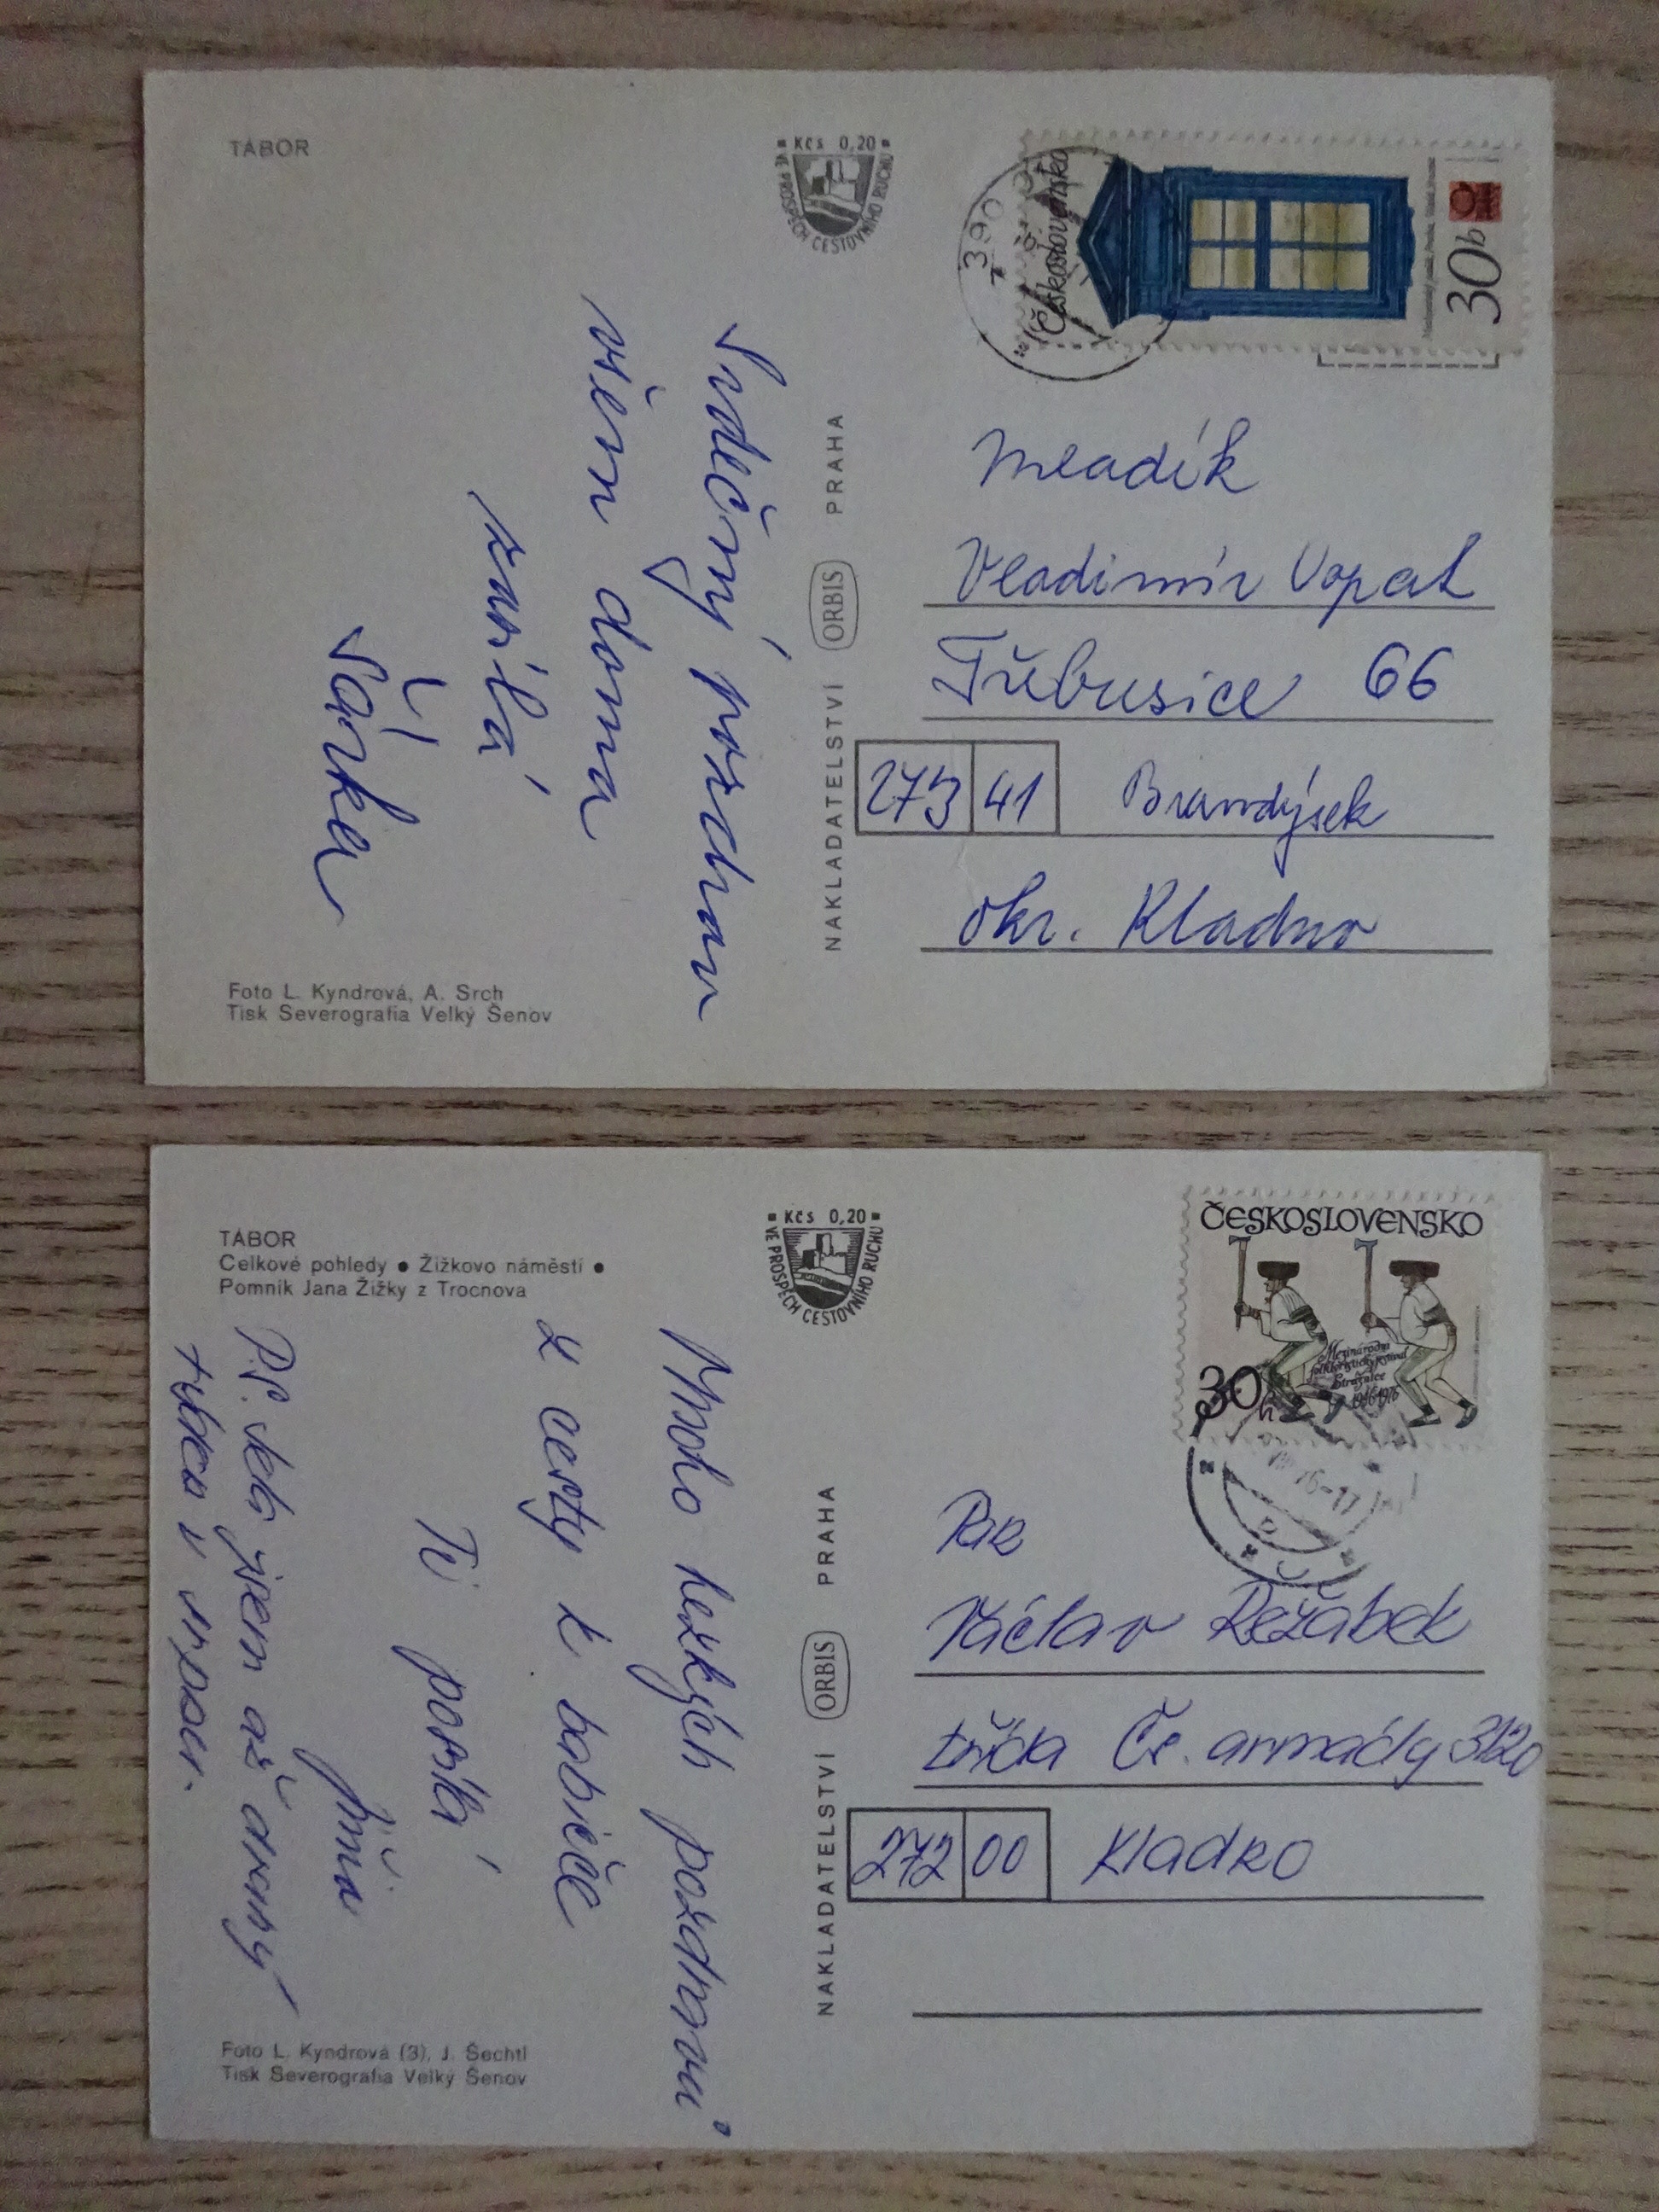 TÁBOR
Kčs 0,20
VE PROSPĚCH CESTOVNÍHO RUCHU
Srdečný pozdrav
všem doma
zasílá
Šárka
Foto L. Kyndrová, A. Srch
Tisk Severografia Velký Šenov
NAKLADATELSTVÍ ORBIS PRAHA
390
Československo
30h
Mladík
Vladimír Vopat
Třebusice 66
273 41 Brandýsek
okr. Kladno
TÁBOR
Celkové pohledy • Žižkovo náměstí •
Pomník Jana Žižky z Trocnova
Kčs 0,20
VE PROSPĚCH CESTOVNÍHO RUCHU
Mnoho hezkých pozdravů
z cesty k babičce
Ti posílá
Jiřin
P.S. jsem až druhý
Foto L. Kyndrová (3), J. Šechtl
Tisk Severografia Velký Šenov
NAKLADATELSTVÍ ORBIS PRAHA
ČESKOSLOVENSKO
Mezinárodní
folkloristický festival
Strážnice
1946-1976
30h
76-17
Václav Řežábek
třída Čs. armády 3120
272 00 Kladno